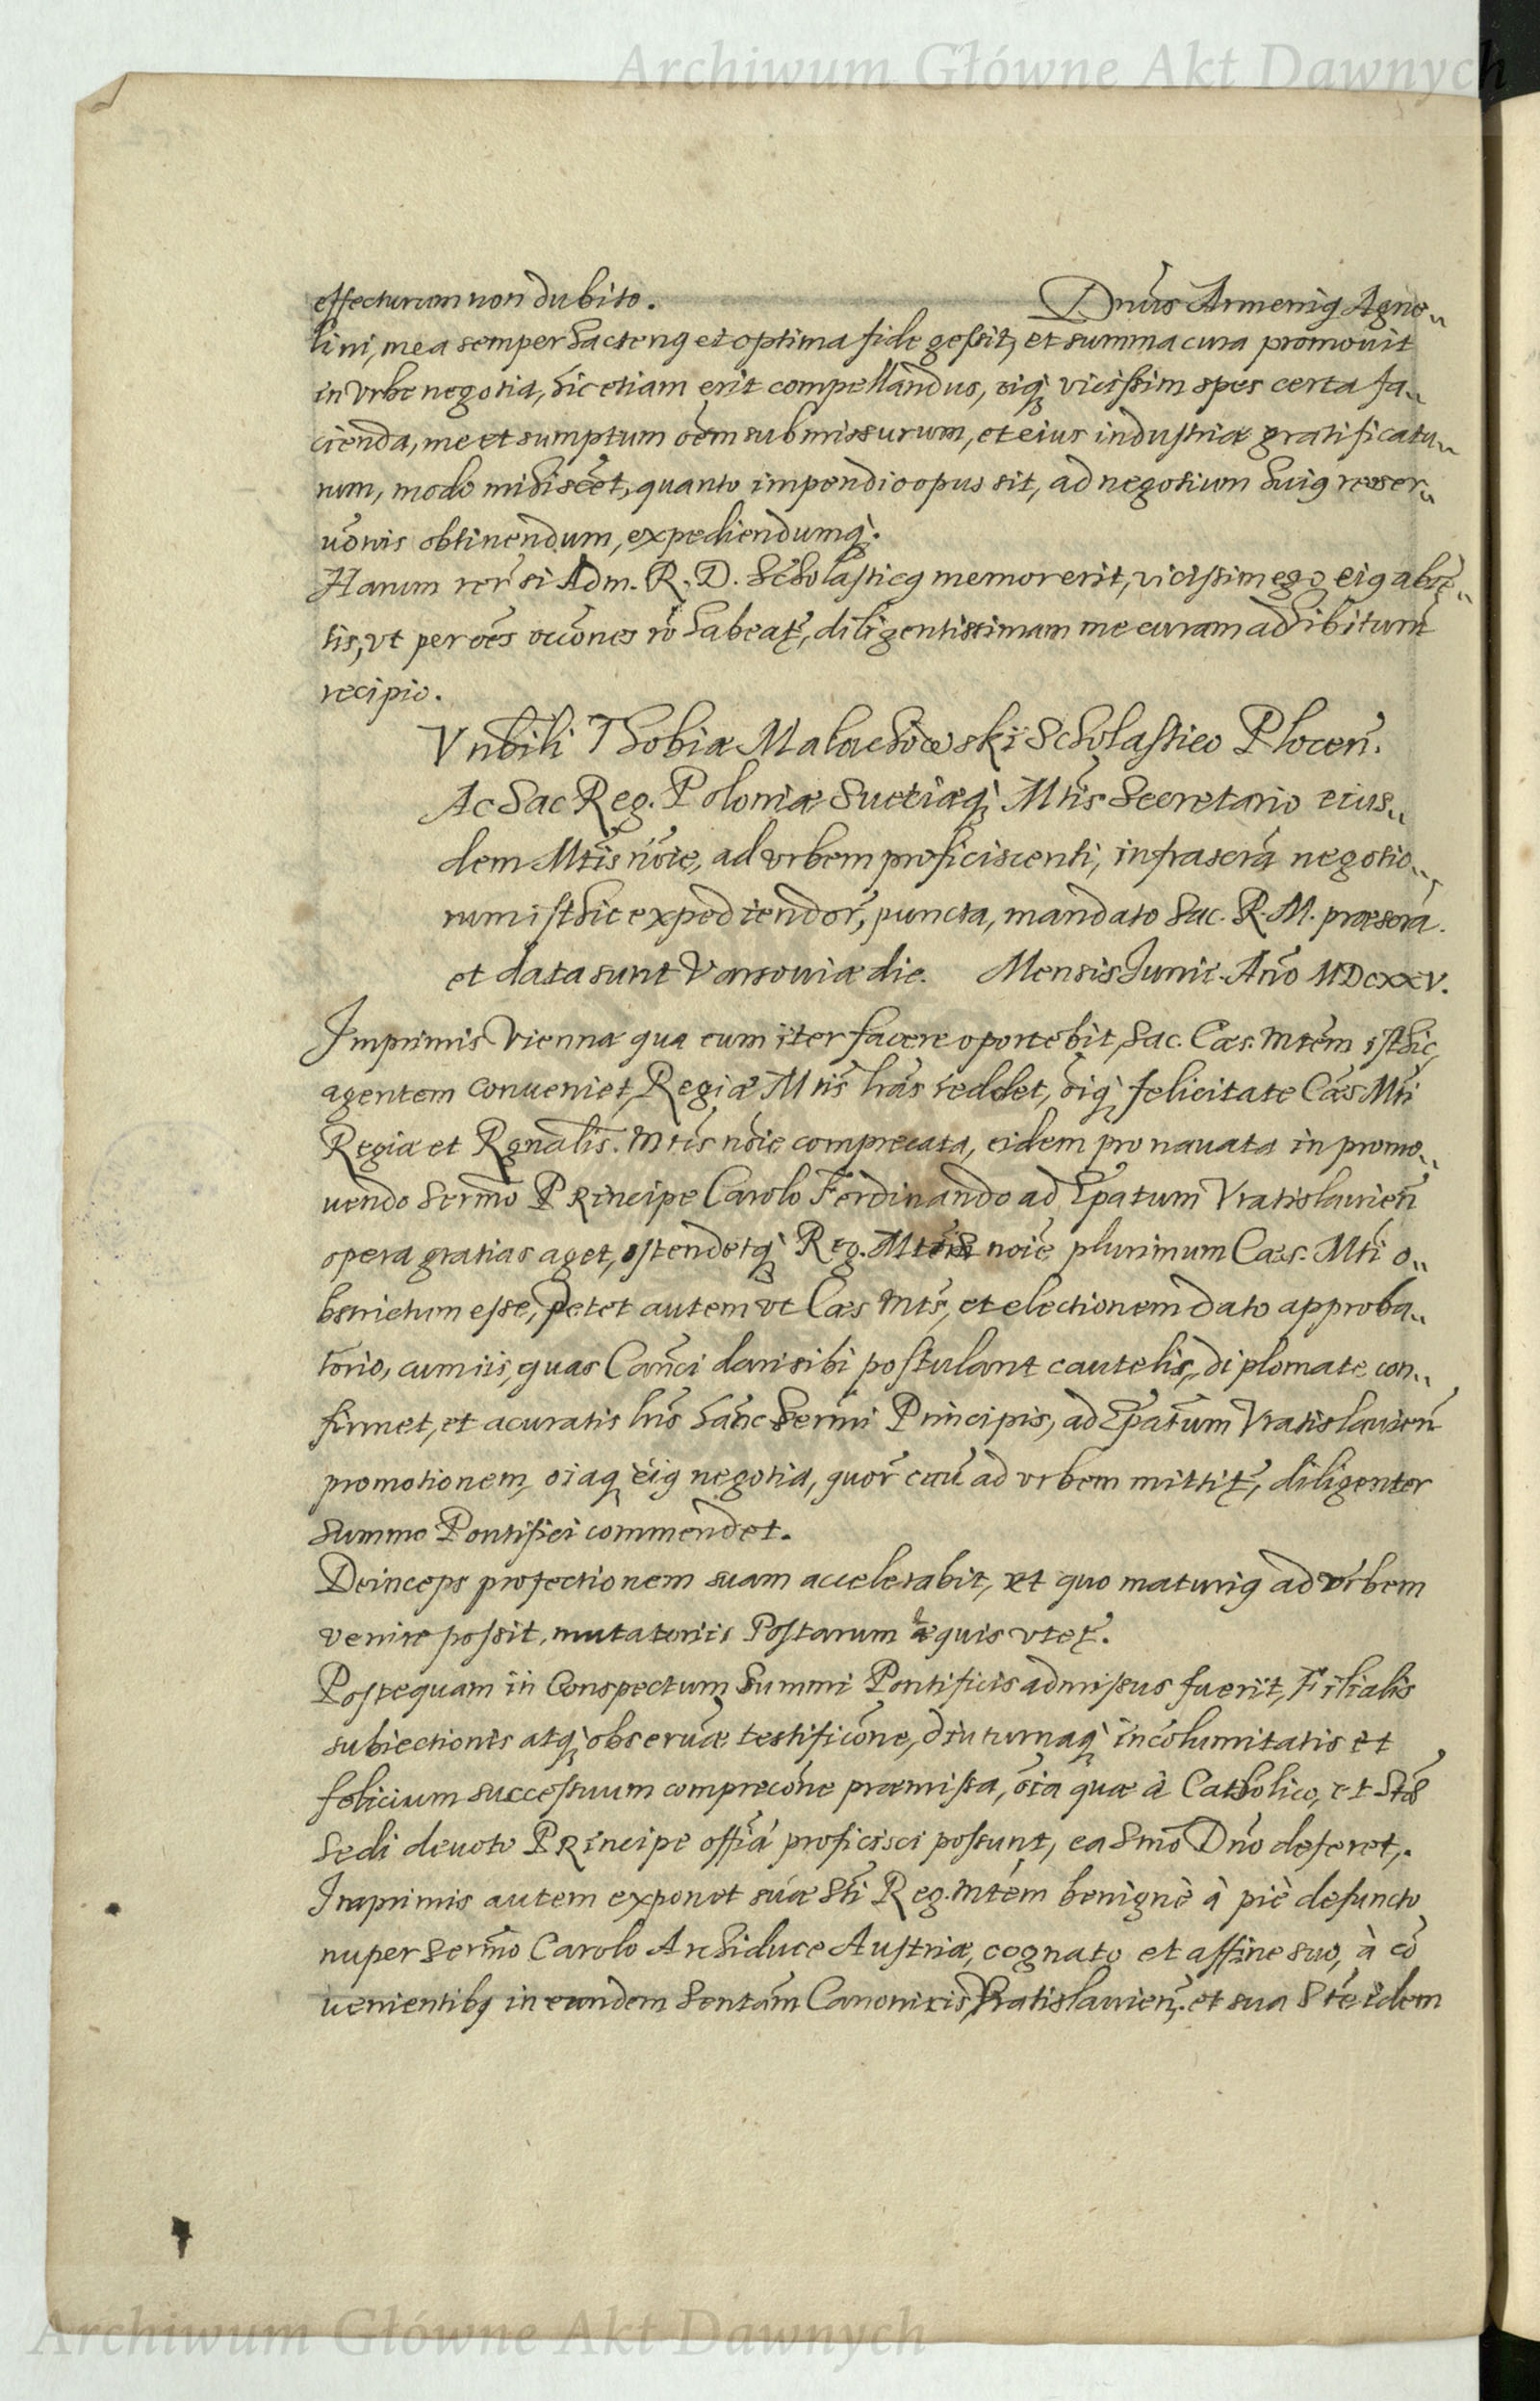 Archiwum Główne Akt Dawnych
effecturum non dubito. Dnũs Armeniq Agno„
lini, mea semper hactenq et optima fide gessit, et summa cura promouit
in Vrbe negotia, hic etiam erit compellandus, eiq; vicissim spes certa fa„
cienda, me et sumptum oẽm submissurum, et eius industriæ gratificatu„
rum, modo mihi scẽt, quanto impendio opus sit, ad negotium huiq reser„
uõnis obtinendum, expediendumq;.
Harum rer̃ si Adm. R. D. Scholasticq memor erit, vicissim ego eiq absẽ„
tis, vt per oẽs occõnes rõ habeat, diligentissimam me curam adhibitum̃
recipio.
Vnobili Thobiæ Malachowski Scholastico Plocen̄.
Ac Sac Reg. Poloniæ Sueciæq; Mtis Secretario eius„
dem Mtis nõie, ad vrbem proficiscenti, infrascrã negotio„
rum isthic expediendor̃, puncta, mandato Sac. R. M. præscrã.
et data sunt Varsouiæ die. Mensis Junii. Año MDCXXV.
Imprimis Viennæ qua eum iter facere oportebit, Sac. Cæs. Mtẽm isthic,
agentem conueniet, Regiæ Mtis lrãs reddet, õiq; felicitate Cæs Mti
Regiæ et Rgnalis. Mtis nõie comprecata, eidem pro nauata in promo„
uendo Sermõ PRincipe Carolo Ferdinando ad Epatum Vratislauien̄
opera gratias aget, ostendetq; Reg. Mtẽm noie plurimum Cæs. Mti o„
bstrictum esse, petet autem vt Cæs Mts, et electionem dato approba„
torio, cum iis, quas Canci dari sibi postulant cautelis, diplomate con„
firmet, et acuratis lris hanc Sermi Principis, ad Epatum Vratislauien̄
promotionem, oiaq; eiq negotia, quor̃ cau ad vrbem mittit, diligenter
Summo Pontifici commendet.
Deinceps profectionem suam accelerabit, et quo maturiq ad vrbem
venire possit, mutatoriis Postarum æquis vtet.
Postequam in Conspectum Summi Pontificis admissus fuerit, Filialis
subiectionis atq; obseruæ testificõne, diuturnæq; incolumitatis et
felicium successuum comprecõne præmissa, õia quæ à Catholico, et Stæ
Sedi deuoto PRincipe offia proficisci possunt, ea Smo Dño deferet,.
Imprimis autem exponet suæ Sti Reg. Mtem benignè à piè defuncto
nuper Sermo Carolo Archiduce Austriæ, cognato et affine suo, à cõ
uenientibq in eandem Sentam Canonicis Vratislauien̄. et sua Ste idem
Archiwum Główne Akt Dawnych